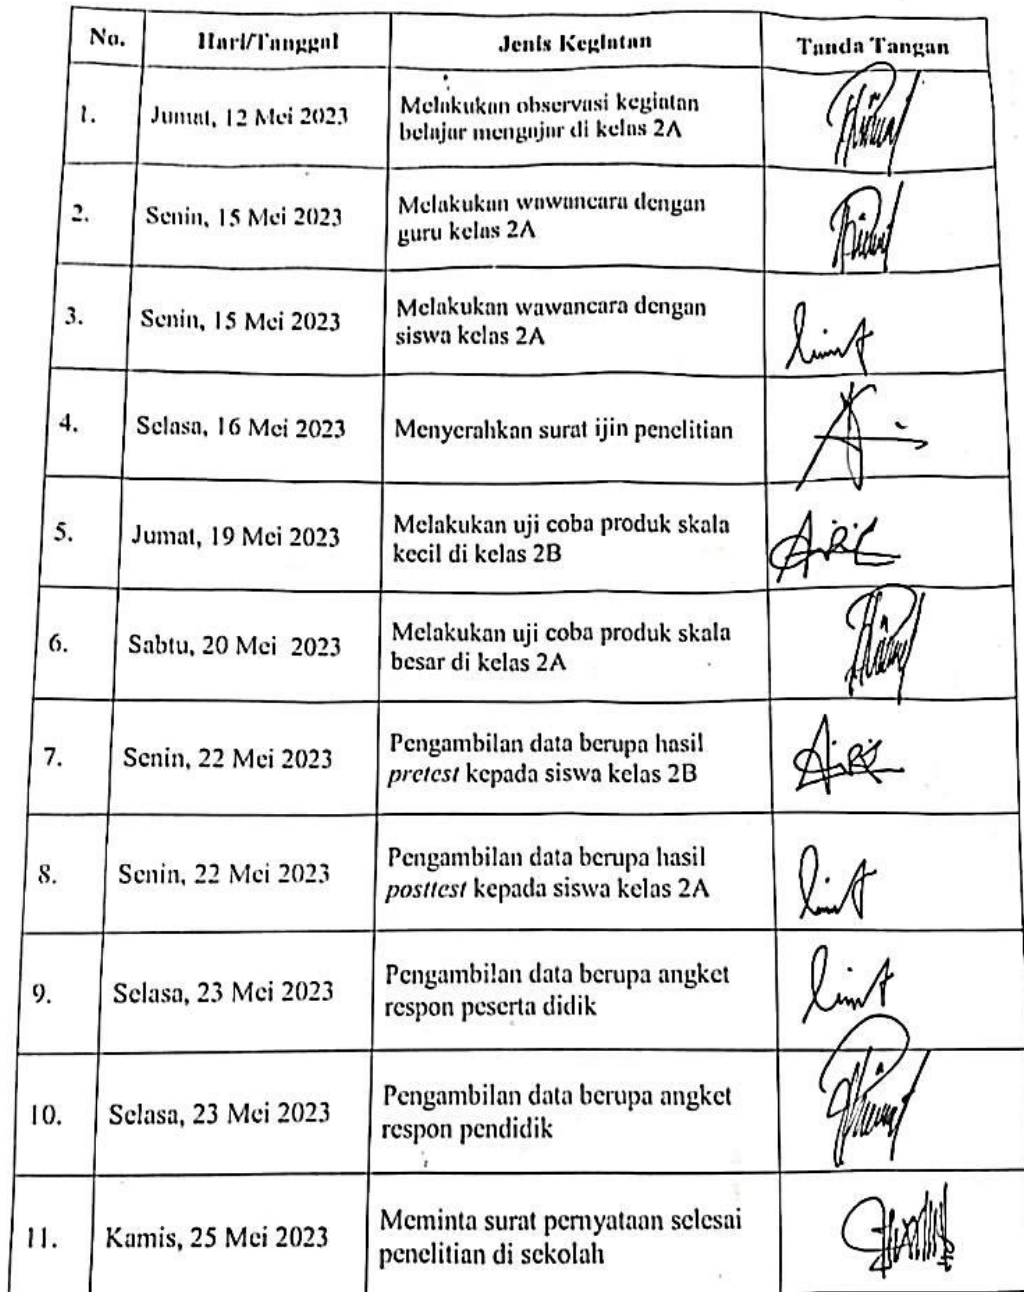 No. Hari/Tanggal Jenis Kegiatan Tanda Tangan
1. Jumat, 12 Mei 2023 Melakukan observasi kegiatan
belajar mengajar di kelas 2A
2. Senin, 15 Mei 2023 Melakukan wawancara dengan
guru kelas 2A
3. Senin, 15 Mei 2023 Melakukan wawancara dengan
siswa kelas 2A
4. Selasa, 16 Mei 2023 Menyerahkan surat ijin penelitian
5. Jumat, 19 Mei 2023 Melakukan uji coba produk skala
kecil di kelas 2B
6. Sabtu, 20 Mei 2023 Melakukan uji coba produk skala
besar di kelas 2A
7. Senin, 22 Mei 2023 Pengambilan data berupa hasil
pretest kepada siswa kelas 2B
8. Senin, 22 Mei 2023 Pengambilan data berupa hasil
posttest kepada siswa kelas 2A
9. Selasa, 23 Mei 2023 Pengambilan data berupa angket
respon peserta didik
10. Selasa, 23 Mei 2023 Pengambilan data berupa angket
respon pendidik
11. Kamis, 25 Mei 2023 Meminta surat pernyataan selesai
penelitian di sekolah